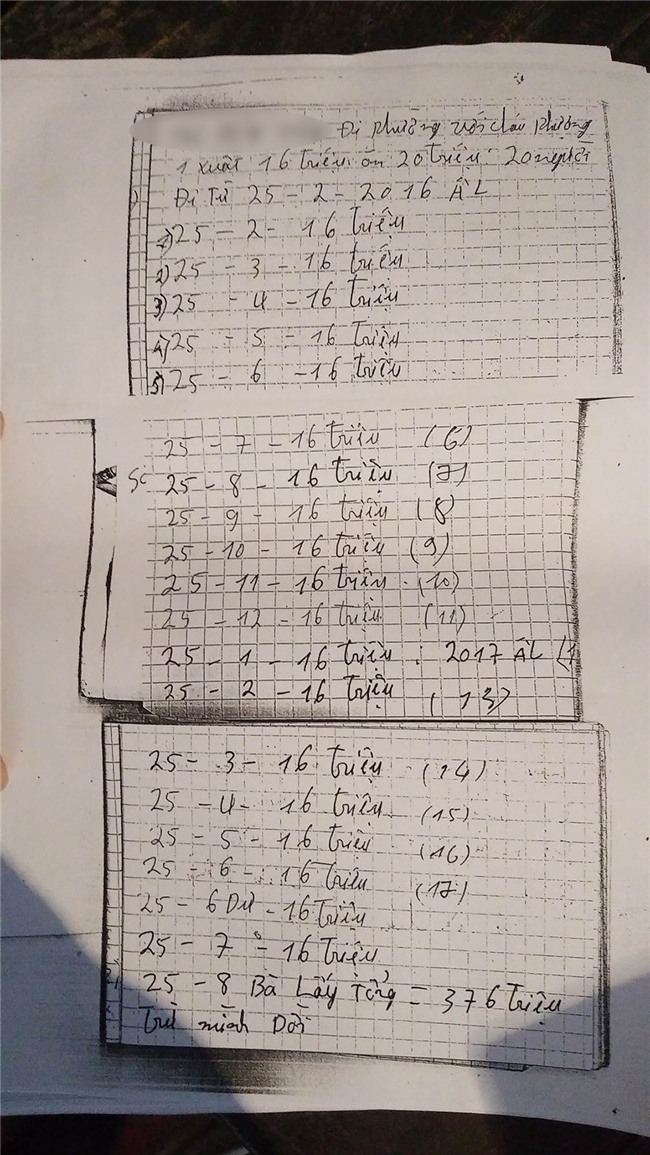 Đi phường với cháu phượng
1 xuất 16 triệu ăn 20 triệu 20 người
Đi Từ 25 - 2 - 2016 ÂL
1) 25 - 2 - 16 triệu
2) 25 - 3 - 16 triệu
3) 25 - 4 - 16 triệu
4) 25 - 5 - 16 triệu
5) 25 - 6 - 16 triệu
25 - 7 - 16 triệu (6)
25 - 8 - 16 triệu (7)
25 - 9 - 16 triệu (8)
25 - 10 - 16 triệu (9)
25 - 11 - 16 triệu (10)
25 - 12 - 16 triệu (11)
25 - 1 - 16 triệu : 2017 ÂL
25 - 2 - 16 triệu (13)
25 - 3 - 16 triệu (14)
25 - 4 - 16 triệu (15)
25 - 5 - 16 triệu (16)
25 - 6 - 16 triệu (17)
25 - 6 Dư - 16 triệu
25 - 7 - 16 triệu
25 - 8 Bà Lấy Tổng = 376 triệu
Trừ mình Dồi